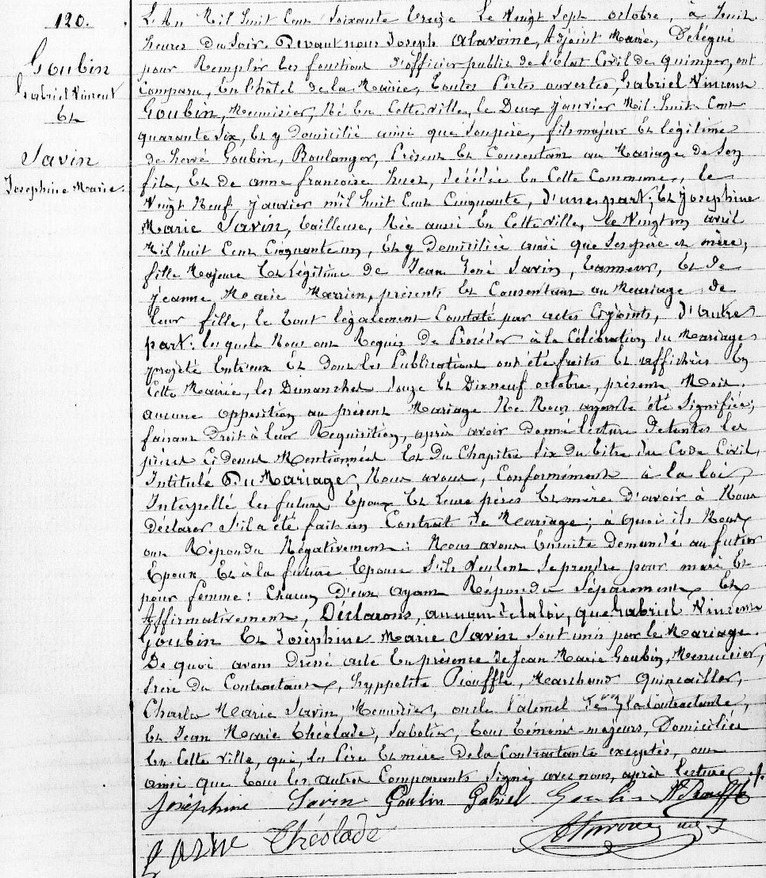 120.
Goubin
Gabriel Vincent
Et
Savin
Josephine Marie.
L'An Mil huit Cent Soixante Treize Le Vingt Sept octobre, à huit
heures du Soir, Devant nous Joseph Alavoine, Adjoint Maire, Délégué
pour Remplir Les fonctions d'officier public de l'Etat Civil de Quimper, ont
Comparu, En l'hôtel de la Mairie, Toutes Portes ouvertes, Gabriel Vincent
Goubin, Menuisier, Né En Cette Ville, le Deux janvier Mil huit Cent
quarante Six, Et y domicilié ainsi que Son père, fils majeur Et légitime
de hervé Goubin, Boulanger, Présent Et Consentant au Mariage de Son
fils, Et de anne francoise huet, décédée En Cette Commune, le
Vingt Neuf janvier mil huit Cent Cinquante, d'une part; Et Josephine
Marie Savin, Tailleuse, Née aussi En Cette Ville, le Vingt un avril
Mil huit Cent Cinquante un, Et y Domiciliée ainsi que Ses père et mère,
fille Majeure Et légitime de Jean René Savin, Tanneur, Et de
Jeanne Marie Marrien, présents Et Consentant au Mariage de
leur fille, le tout légalement Constaté par actes Cijoints, d'autre
part: lesquels Nous ont Requis de Procéder à la Célébration du Mariage
projeté Entr'eux Et dont les Publications ont été faites Et affichées En
Cette Mairie, les Dimanches Douze Et Dixneuf octobre, présent Mois.
aucune opposition au présent Mariage Ne Nous ayant été Signifiée,
faisant Droit à leur Requisition, après avoir donné lecture De toutes les
pièces Cidessus Mentionnées Et du Chapitre Six du titre du Code Civil,
Intitulé Du Mariage, Nous avons, Conformément à la loi,
Interpellé les futurs Epoux Et Leurs pères Et mère d'avoir à Nous
Déclarer S'il a été fait un Contrat de Mariage; à quoi ils Nous
ont Répondu Négativement: Nous avons Ensuite Demandé au futur
Epoux Et à la future Epouse S'ils Veulent Se prendre pour mari Et
pour femme: Chacun D'eux ayant Répondu Séparément Et
Affirmativement, Déclarons, au nom de la loi, que Gabriel Vincent
Goubin Et Joséphine Marie Savin Sont unis par le Mariage.
De quoi avons Dressé acte En présence de Jean Marie Goubin, Menuisier,
frère du Contractant, hyppolite Piouffle, Marchand Quincailler,
Charles Marie Savin, Menuisier, oncle Paternel de la Contractante,
Et Jean Marie Théolade, Sabotier, Tous témoins majeurs, Domiciliés
En Cette Ville, qui, les Père Et mère De la Contractante exceptés, ont
ainsi que Tous les autres Comparants Signé avec nous, après lecture
Joséphine Savin Goubin Gabriel Goubin
Savin Théolade